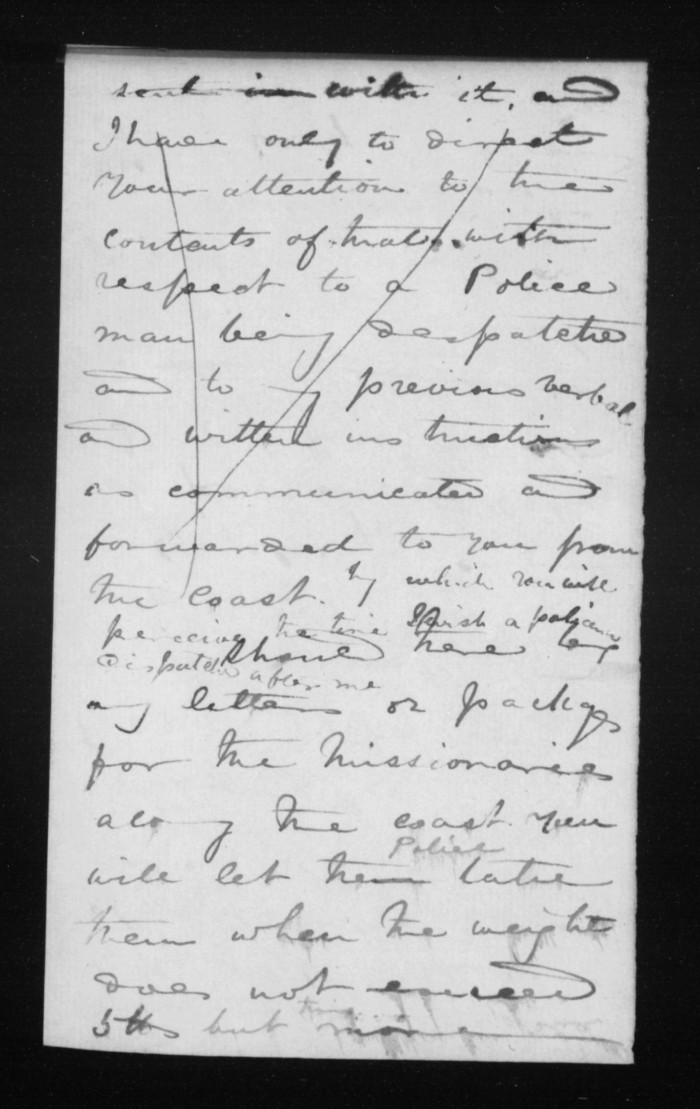 sent in with it, and
I have only to direct
your attention to the
contents of that, with
respect to a Police
man being despatched
and to my previous verbal
and written instructions
as communicated and
forwarded to you from
the coast. by which you will
perceive the time I wish a policeman
Should there be
dispatched after me
any letters or packages
for the Missionaries
along the coast you
Police
will let them take
them when the weight
does not exceed
5 lbs but